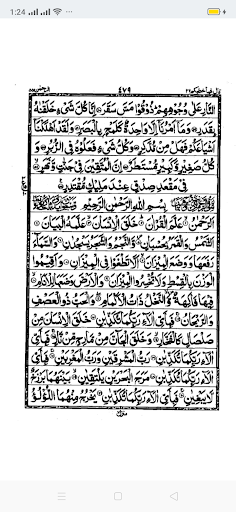 1:24
۴۷۹
النَّارِ عَلٰى وُجُوْهِهِمْ ذُوْقُوْا مَسَّ سَقَرَ اِنَّا كُلَّ شَيْءٍ خَلَقْنٰهُ
بِقَدَرٍ وَمَا اَمْرُنَا اِلَّا وَاحِدَةٌ كَلَمْحٍ بِالْبَصَرِ وَلَقَدْ اَهْلَكْنَا
اَشْيَاعَكُمْ فَهَلْ مِنْ مُّدَّكِرٍ وَكُلُّ شَيْءٍ فَعَلُوْهُ فِي الزُّبُرِ وَ
كُلُّ صَغِيْرٍ وَّكَبِيْرٍ مُّسْتَطَرٌ اِنَّ الْمُتَّقِيْنَ فِيْ جَنّٰتٍ وَّنَهَرٍ
فِيْ مَقْعَدِ صِدْقٍ عِنْدَ مَلِيْكٍ مُّقْتَدِرٍ
بِسْمِ اللّٰهِ الرَّحْمٰنِ الرَّحِيْمِ
اَلرَّحْمٰنُ عَلَّمَ الْقُرْاٰنَ خَلَقَ الْاِنْسَانَ عَلَّمَهُ الْبَيَانَ
اَلشَّمْسُ وَالْقَمَرُ بِحُسْبَانٍ وَّالنَّجْمُ وَالشَّجَرُ يَسْجُدٰنِ وَالسَّمَآءَ
رَفَعَهَا وَوَضَعَ الْمِيْزَانَ اَلَّا تَطْغَوْا فِي الْمِيْزَانِ وَاَقِيْمُوا
الْوَزْنَ بِالْقِسْطِ وَلَا تُخْسِرُوا الْمِيْزَانَ وَالْاَرْضَ وَضَعَهَا لِلْاَنَامِ
فِيْهَا فَاكِهَةٌ وَّالنَّخْلُ ذَاتُ الْاَكْمَامِ وَالْحَبُّ ذُو الْعَصْفِ
وَالرَّيْحَانُ فَبِاَيِّ اٰلَآءِ رَبِّكُمَا تُكَذِّبٰنِ خَلَقَ الْاِنْسَانَ مِنْ
صَلْصَالٍ كَالْفَخَّارِ وَخَلَقَ الْجَآنَّ مِنْ مَّارِجٍ مِّنْ نَّارٍ فَبِاَيِّ
اٰلَآءِ رَبِّكُمَا تُكَذِّبٰنِ رَبُّ الْمَشْرِقَيْنِ وَرَبُّ الْمَغْرِبَيْنِ فَبِاَيِّ
اٰلَآءِ رَبِّكُمَا تُكَذِّبٰنِ مَرَجَ الْبَحْرَيْنِ يَلْتَقِيٰنِ بَيْنَهُمَا بَرْزَخٌ
لَّا يَبْغِيٰنِ فَبِاَيِّ اٰلَآءِ رَبِّكُمَا تُكَذِّبٰنِ يَخْرُجُ مِنْهُمَا اللُّؤْلُؤُ